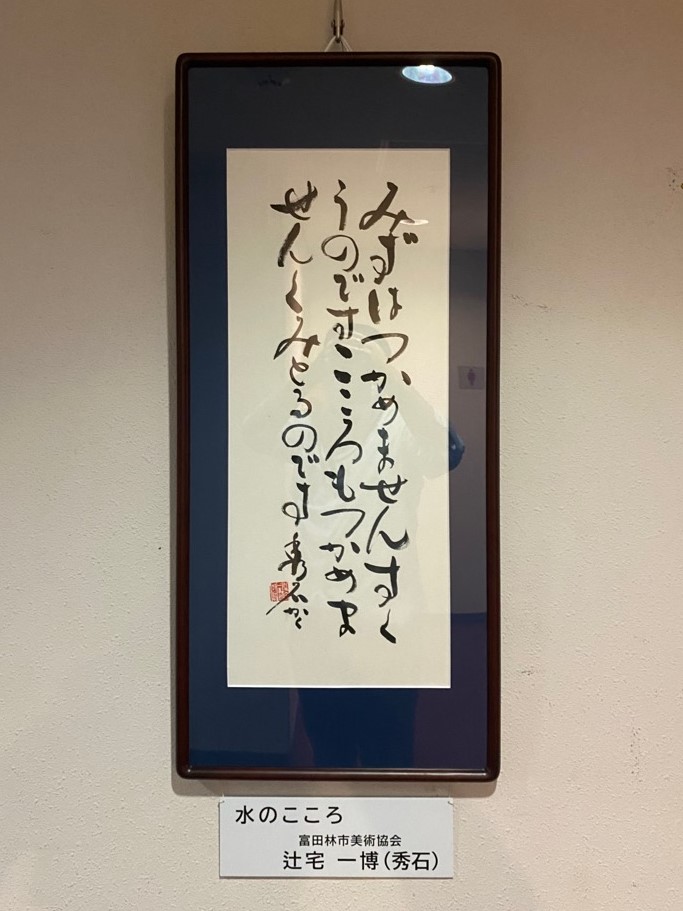 みずはつかめませんすく
うのですこころもつかめま
せんくみとるのです
秀石かく
水のこころ
富田林市美術協会
辻宅 一博(秀石)